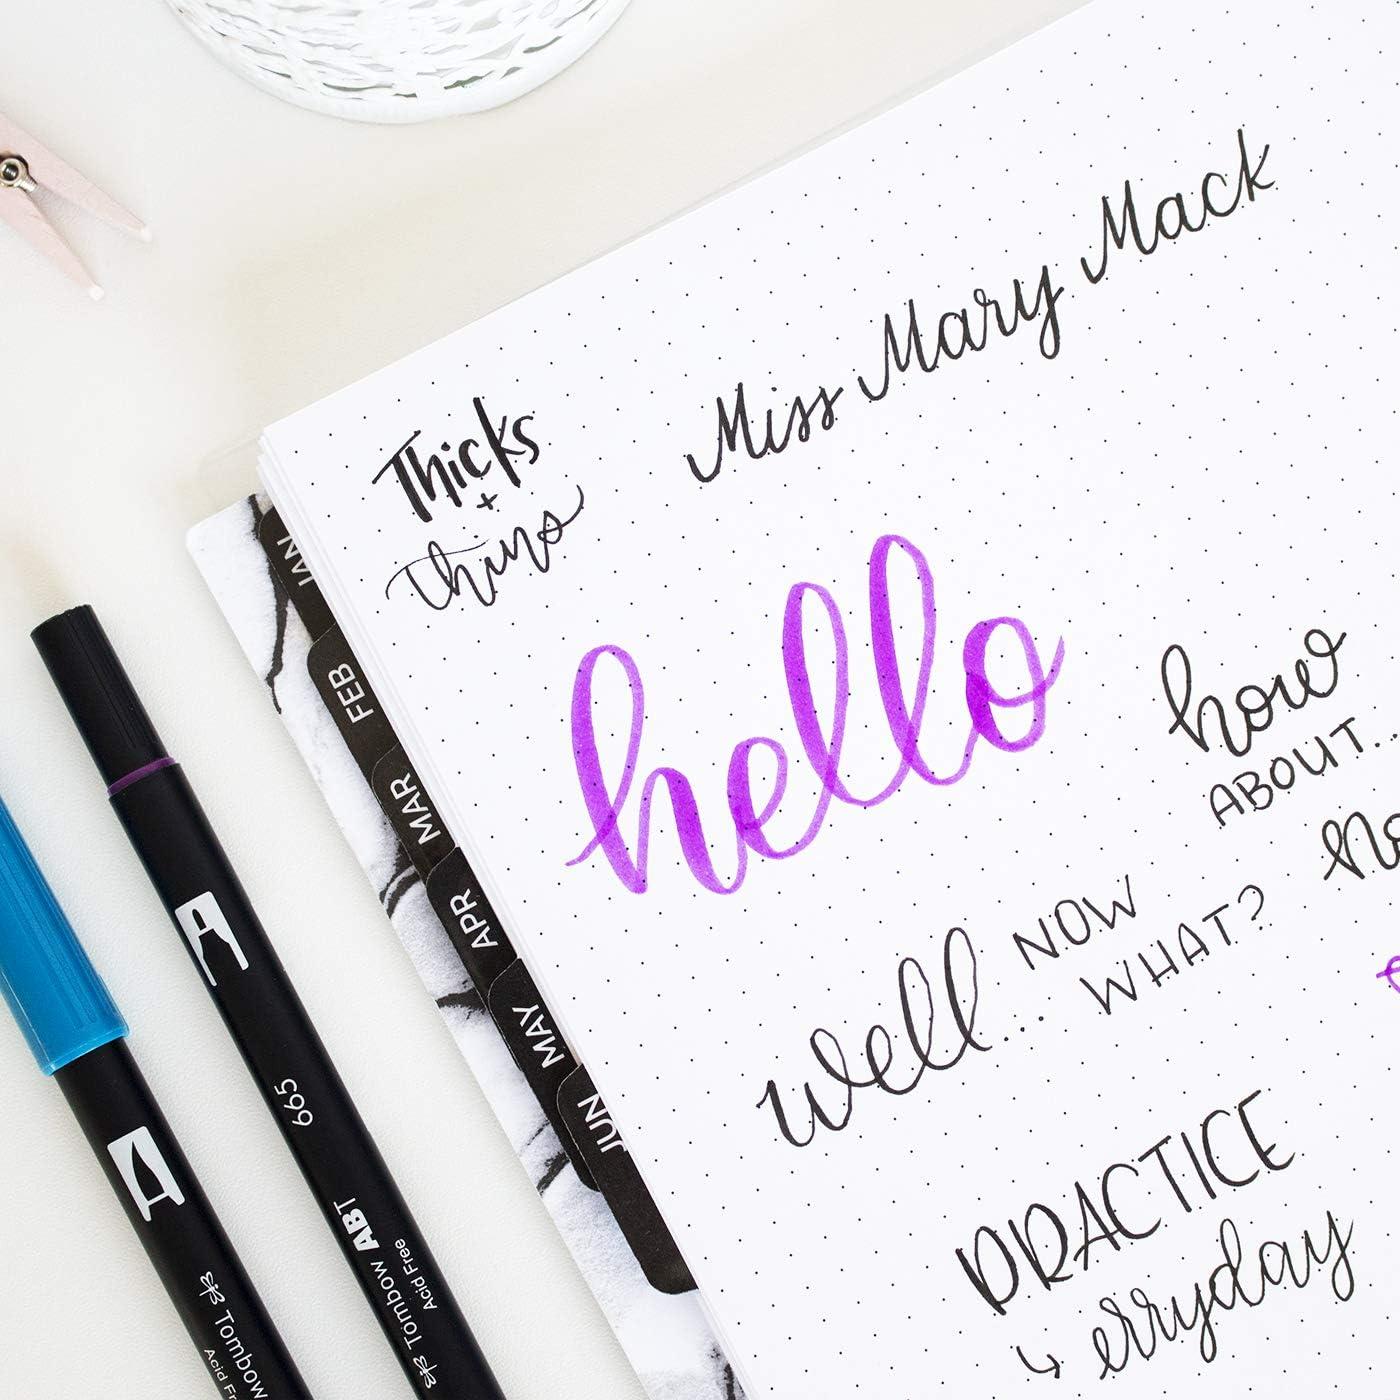 Miss Mary Mack
Thicks
+
Thins
hello
how
ABOUT...
well... NOW
WHAT?
PRACTICE
↳ erryday
JAN
FEB
MAR
APR
MAY
JUN
665
Tombow ABT
Acid Free
Tombow
Acid Fr